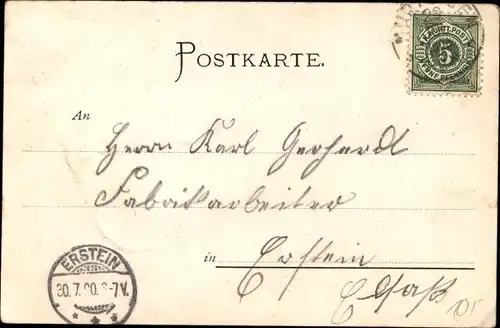 K. WÜRTT. POST
5
FÜNF PFENNIG
POSTKARTE.
An
Herrn Karl Gerhardt
Fabrikarbeiter
in Erstein
Elsaß
ERSTEIN
30.7.00. 6-7V.